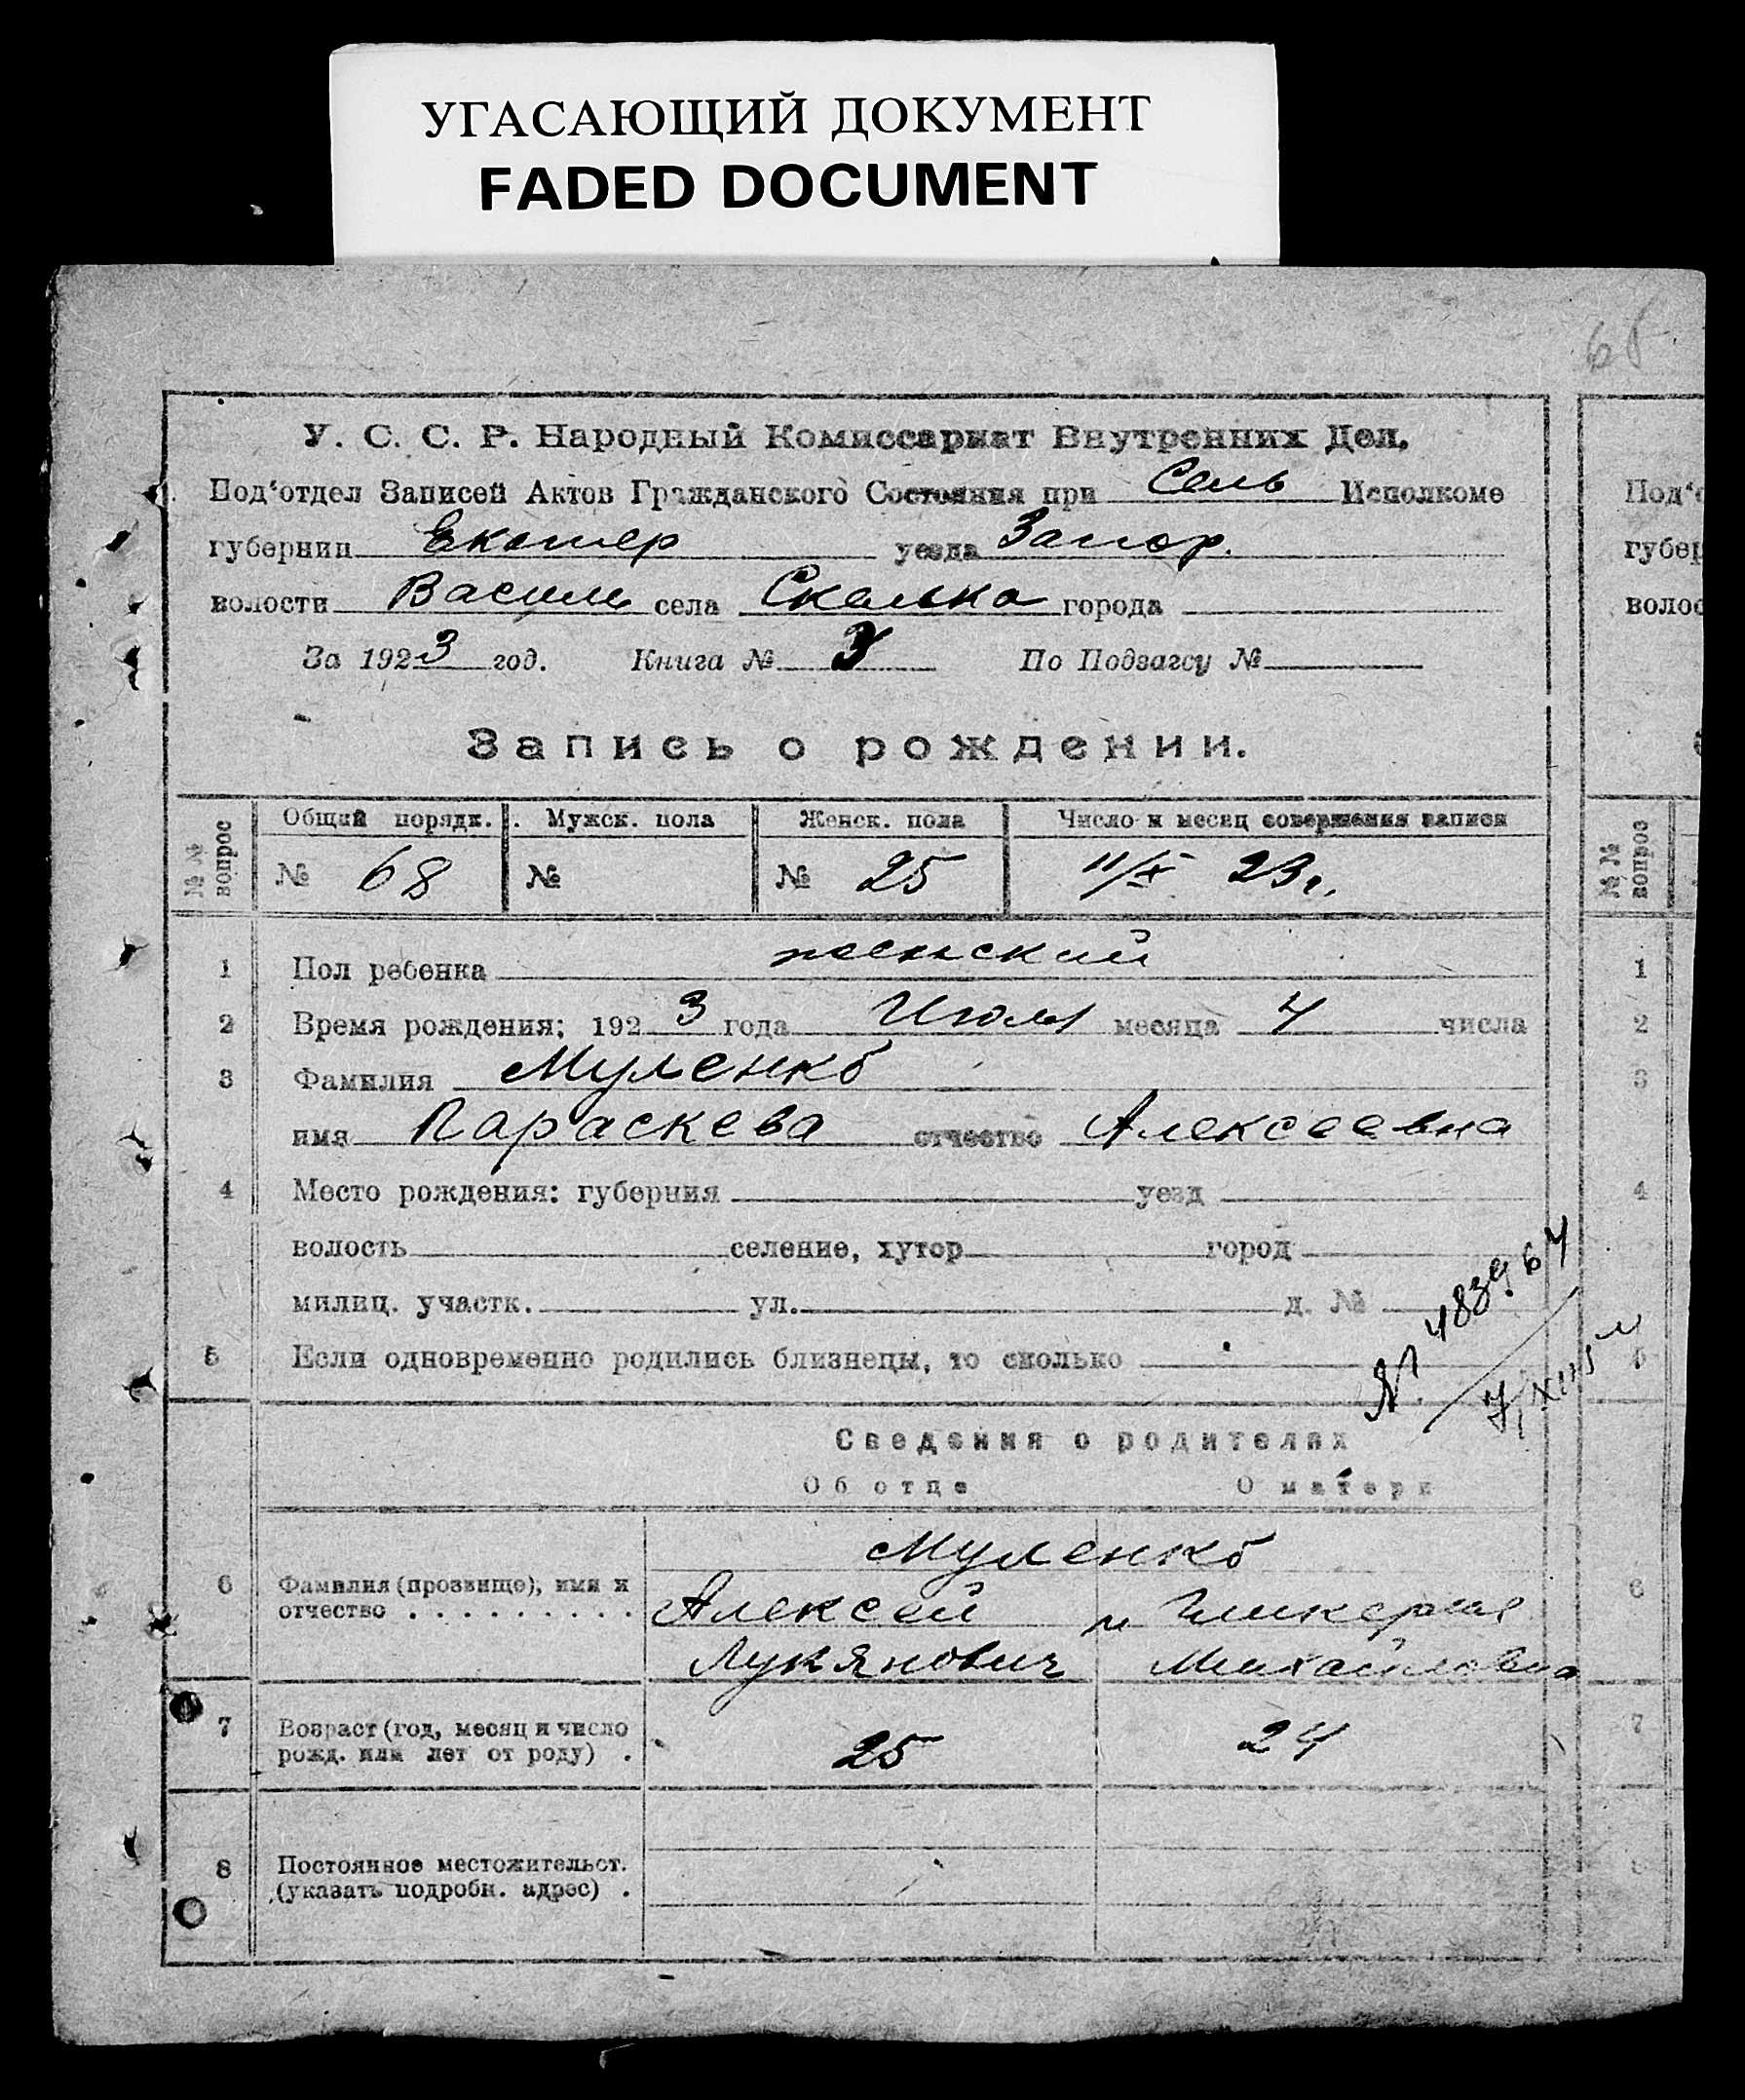 УГАСАЮЩИЙ ДОКУМЕНТ
FADED DOCUMENT
У. С. С. Р. Народный Комиссариат Внутренних Дел.
Под‘отдел Записей Актов Гражданского Состояния при Сель Исполкоме
губернии Екатер уезда Запор.
волости Василь села Скелька города
За 1923 год. Книга № 3 По Подзагсу №
Запись о рождении.
№ № вопрос Общий порядк. Мужск. пола Женск. пола Число и месяц совершения записи
№ 68 № № 25 11/X 23г.
1 Пол ребенка женский
2 Время рождения: 1923 года Июля месяца 4 числа
3 Фамилия Муленко
имя Параскева отчество Алексеевна
4 Место рождения: губерния уезд
волость селение, хутор город
милиц. участк. ул. д. №
№ 483964
5 Если одновременно родились близнецы, то сколько
Сведения о родителях
Об отце О матери
Муленко
6 Фамилия (прозвище), имя и
отчество Алексей и Гликерия
Лукянович Михайловна
7 Возраст (год, месяц и число
рожд. или лет от роду) 25 24
8 Постоянное местожительст.
(указать подробн. адрес)
Под‘
губер
волос
№ № вопрос
1
2
3
4
5
6
7
8